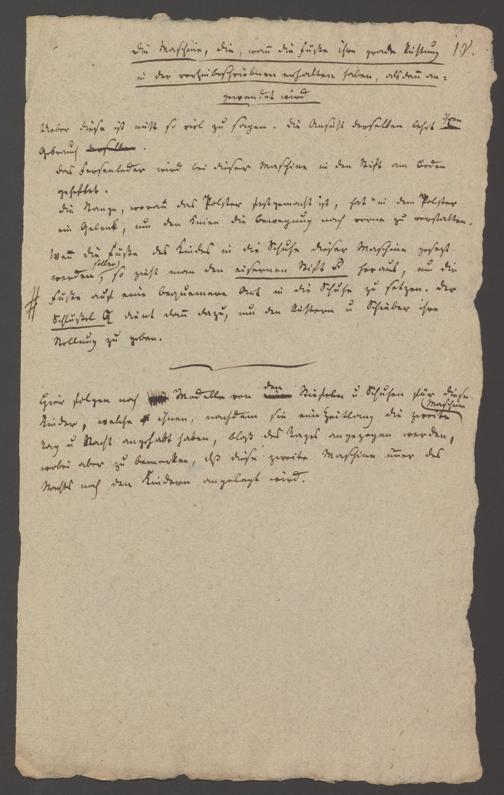 18.
Die Maschine, die, wann die Füße ihre grade Richtung
in der vorhinbeschriebnen erhalten haben, alsdann an-
gewendet wird
Ueber diese ist nicht so viel zu sagen. Die Ansicht derselben lehrt ihren
Gebrauch derselben.
Das Fersenleder wird bei dieser Maschine in den Stift am Boden
geheftet.
Die Stange, woran das Polster festgemacht ist, hat in dem Polster
ein Gelenk, um den Knien die Bewegung nach vorne zu verstatten.
Wenn die Füße des Kindes in die Schuhe dieser Maschine gesezt
werden sollen, so zieht man den eisernen Stift heraus, um die
Füße auf eine bequemere Art in die Schuhe zu setzen. Der
Schlüssel dient dann dazu, um den Küstern u Schieber ihre
Stellung zu geben.
Hier folgen noch Modelle von den Stiefeln u Schuhen für diese
Kinder, welche ihnen, nachdem sie eine Zeitlang die zweite Maschine
Tag u Nacht angehabt haben, bloß des Tages angezogen werden,
wobei aber zu bemerken, daß diese zweite Maschine immer des
Nachts noch den Kindern angelegt wird.